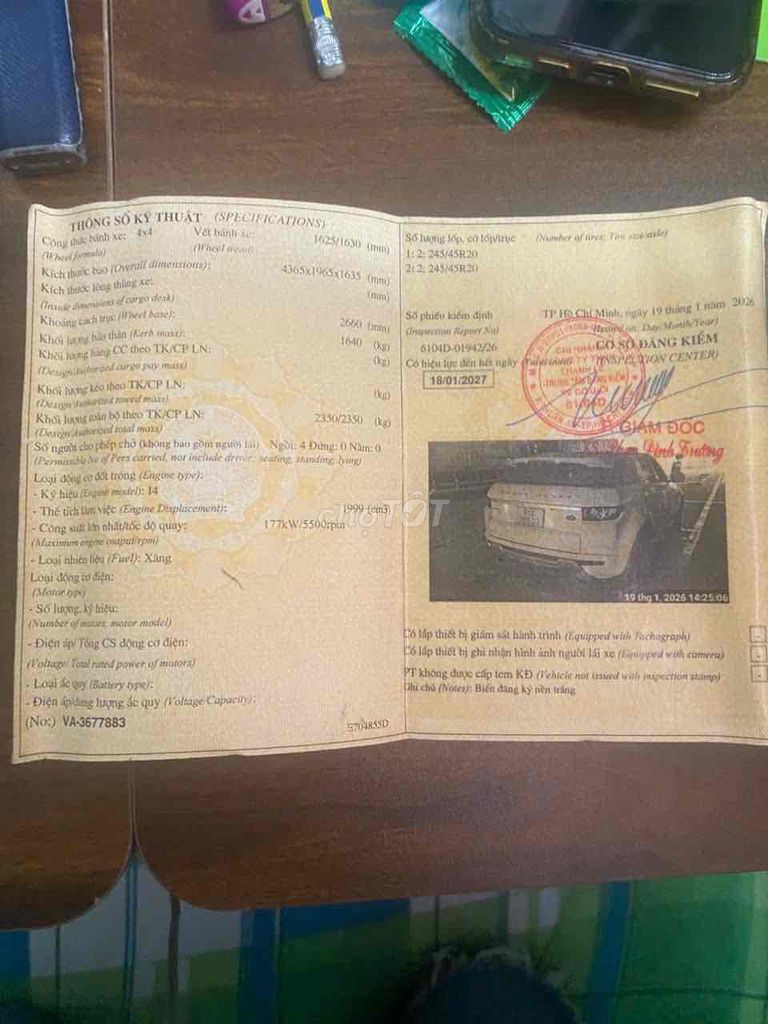 THÔNG SỐ KỸ THUẬT (SPECIFICATIONS)
Công thức bánh xe: 4x4 Vết bánh xe: 1625/1630 (mm)
(Wheel formula) (Wheel tread)
Kích thước bao (Overall dimensions): 4365x1965x1635 (mm)
Kích thước lòng thùng xe: (mm)
(Inside dimensions of cargo desk)
Khoảng cách trục (Wheel base): 2660 (mm)
Khối lượng bản thân (Kerb mass): 1640 (kg)
Khối lượng hàng CC theo TK/CP LN: (kg)
(Design/Authorized cargo pay mass)
Khối lượng kéo theo TK/CP LN: (kg)
(Design/Authorized towed mass)
Khối lượng toàn bộ theo TK/CP LN: 2350/2350 (kg)
(Design/Authorized total mass)
Số người cho phép chở (không bao gồm người lái) Ngồi: 4 Đứng: 0 Nằm: 0
(Permissible No of Pers carried, not include driver: seating, standing, lying)
Loại động cơ đốt trong (Engine type):
- Ký hiệu (Engine model): I4
- Thể tích làm việc (Engine Displacement): 1999 (cm3)
- Công suất lớn nhất/tốc độ quay: 177kW/5500rpm
(Maximum engine output/rpm)
- Loại nhiên liệu (Fuel): Xăng
Loại động cơ điện:
(Motor type)
- Số lượng, ký hiệu:
(Number of motors, motor model)
- Điện áp/ Tổng CS động cơ điện:
(Voltage/ Total rated power of motors)
- Loại ắc quy (Battery type):
- Điện áp/dung lượng ắc quy (Voltage/Capacity):
(No:) VA-3677883
Số lượng lốp, cỡ lốp/trục (Number of tires; Tire size/axle)
1: 2; 245/45R20
2: 2; 245/45R20
Số phiếu kiểm định TP Hồ Chí Minh, ngày 19 tháng 1 năm 2026
(Inspection Report No) (Issued on: Day/Month/Year)
6104D-01942/26 CƠ SỞ ĐĂNG KIỂM
Có hiệu lực đến hết ngày (INSPECTION CENTER)
18/01/2027
GIÁM ĐỐC
Đình Trường
chợTỐT
19 thg 1, 2026 14:25:06
Có lắp thiết bị giám sát hành trình (Equipped with Tachograph)
Có lắp thiết bị ghi nhận hình ảnh người lái xe (Equipped with camera)
PT không được cấp tem KĐ (Vehicle not issued with inspection stamp)
Ghi chú (Notes): Biển đăng ký nền trắng